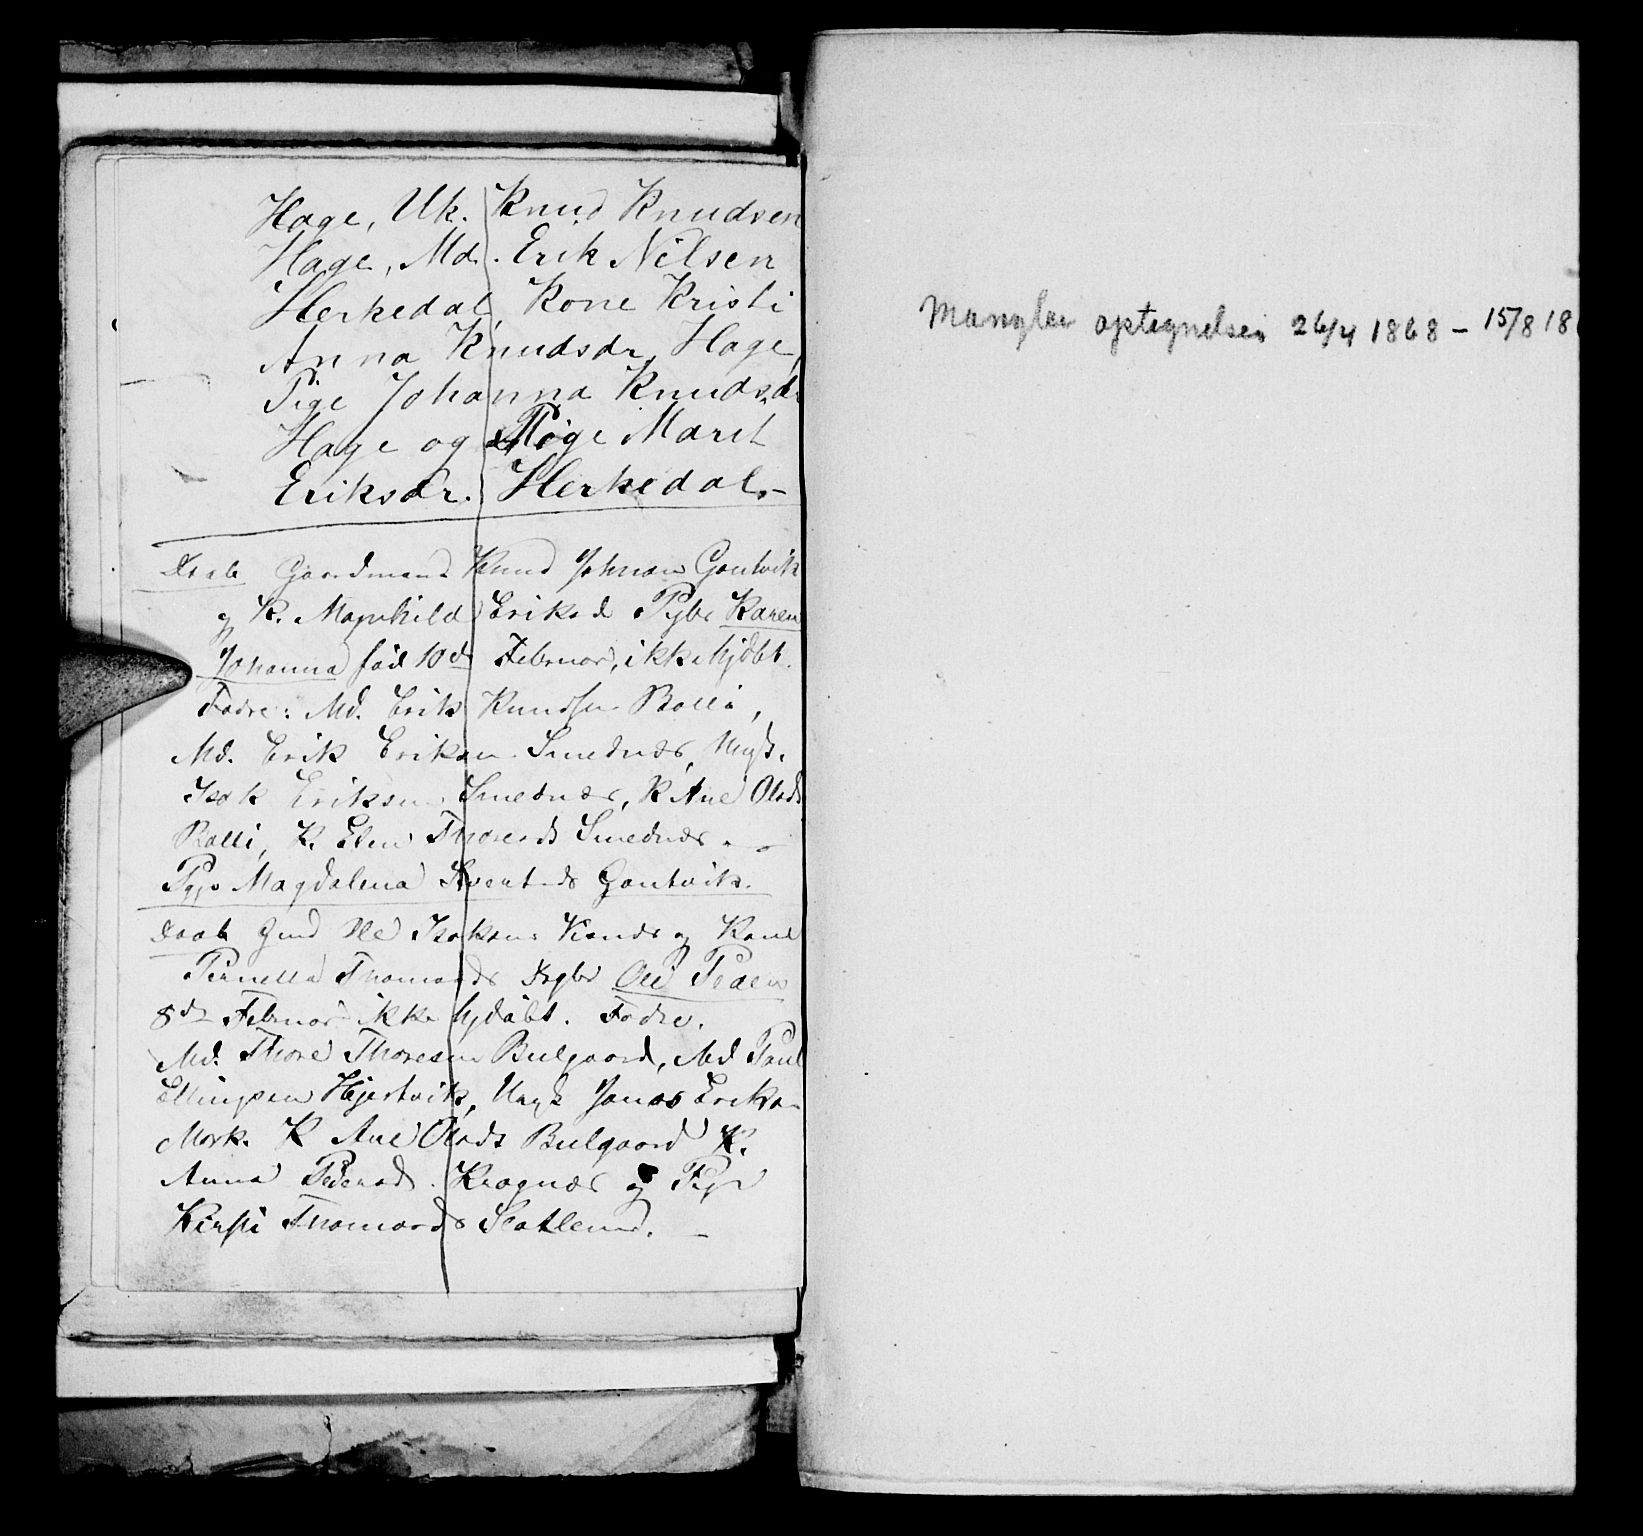 Hage, Uk. Knud Knudsen
Hage, Md. Erik Nilsen
Herkedal, Kone Kristi
Anna Knudsdr. Hage,
Pige Johanna Knudsdr
Hage og Pige Marit
Eriksdr. Herkedal. –
Daab Gaardmand Knud Johnsen Gautvik
og K. Magnhild Eriksd Pgbr Karen
Johanna fød 10de Februar, ikke hjdøbt.
Fadre: Md. Erik Knudsen Bolli,
Md. Erik Eriksen Smednæs, Ungk.
Isak Eriksen Smednæs, K Ane Olsd
Bolli, K. Elen Thoresd Smednæs
Pige Magdalena Sivertsd Gautvik.
Daab Gmd Ole Isaksen og Kone
Pernella Thomasd Drgbr Ole Peder
8de Februar ikke hjdøbt. Fadre.
Md. Thore Thoresen Bulgaard, Md Paul
Ellingsen Hjertvik, Ungk Jonas Eriks
Mork. K Ane Olsd Bulgaard K.
Anna Pedersd. Kragnæs og Pige
Kirsti Thomasd
Mangler optegnelser 26/4 1868 – 15/8 18